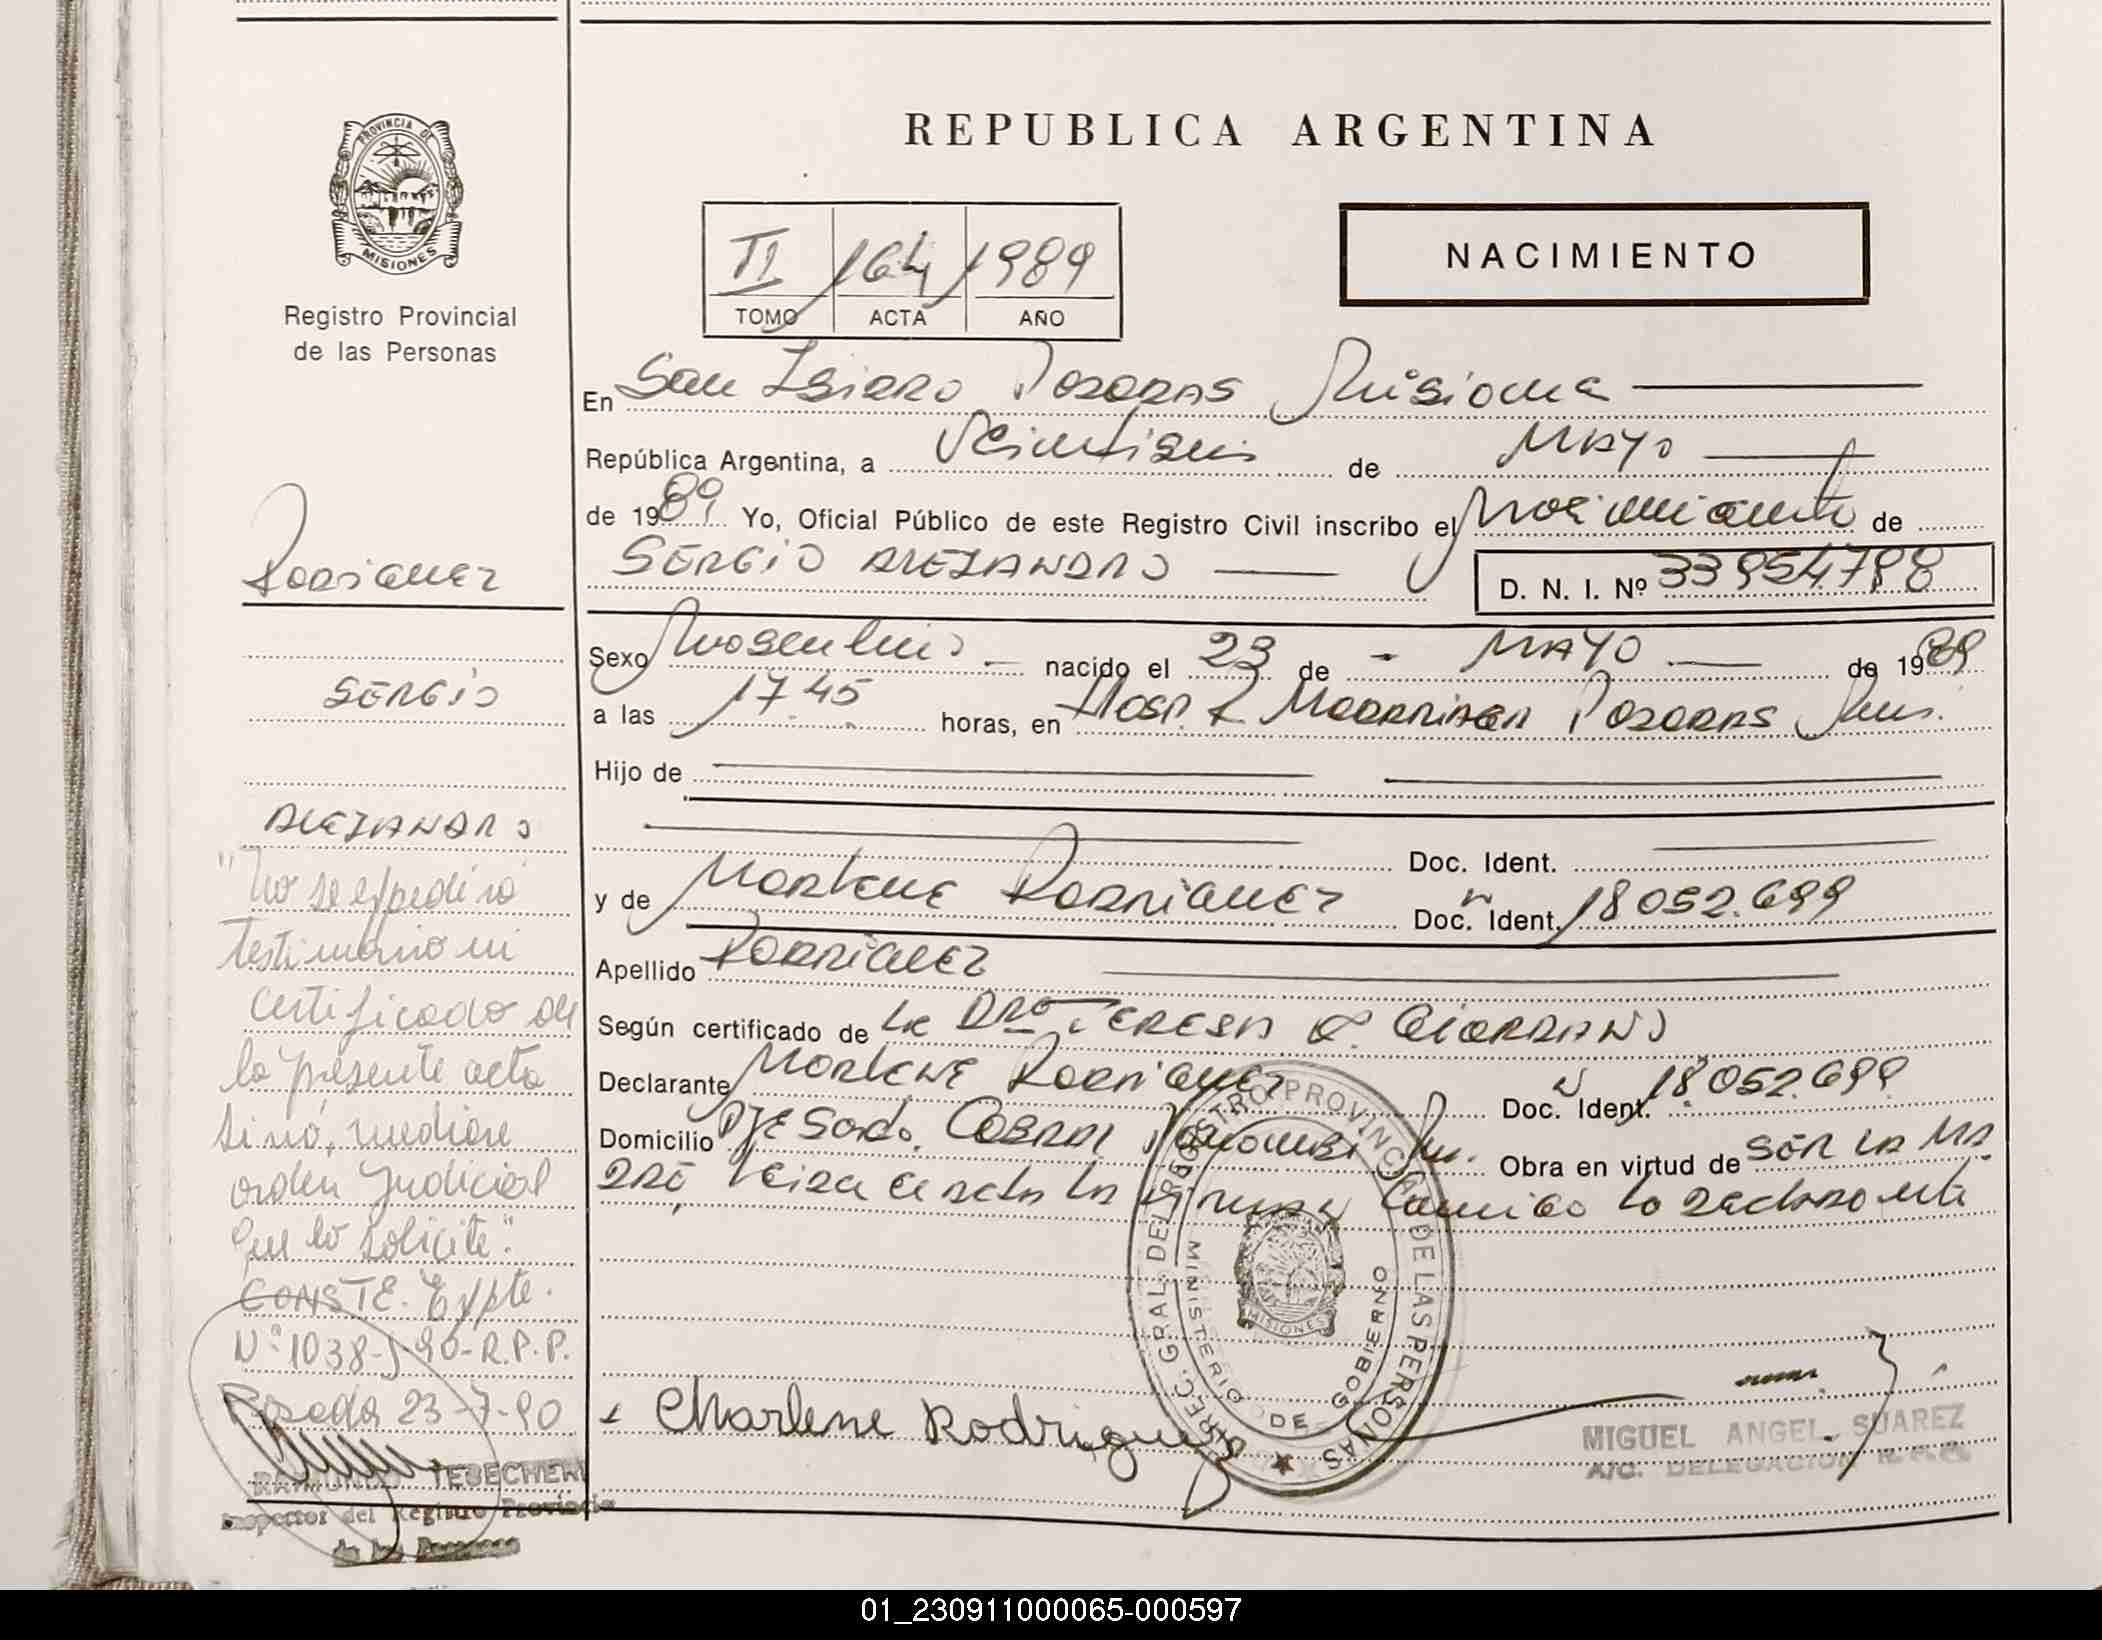 REPUBLICA ARGENTINA
PROVINCIA DE
MISIONES
Registro Provincial
de las Personas
NACIMIENTO
II 164 1989
TOMO ACTA AÑO
En San Isidro Posadas Misiones
República Argentina, a Veintiseis de MAYO
de 1989 Yo, Oficial Público de este Registro Civil inscribo el Nacimiento de
SERGIO ALEJANDRO
D. N. I. Nº 33954798
Sexo Masculino nacido el 23 de MAYO de 1989
a las 17.45 horas, en Hosp R Madariaga Posadas Mis.
Hijo de
Doc. Ident.
y de Marlene Rodriguez Doc. Ident. 18.052.699
Apellido Rodriguez
Según certificado de la Dra TERESA GIORDANO
Declarante Marlene Rodriguez Doc. Ident. 18.052.699
Domicilio Pje Sgdo. Cabral Panambi Mis. Obra en virtud de SER LA MA
DRE Leida el acta la firma conmigo la declarante
Charlene Rodriguez
REGISTRO PROVINCIAL DE LAS PERSONAS
DIREC. GRAL. DEL
MINISTERIO DE GOBIERNO
MISIONES
MIGUEL ANGEL SUAREZ
A/C. DELEGACION R.P.P.
Rodriguez
SERGIO
ALEJANDRO
"No se expedirá
testimonio ni
certificado de
la presente acta
si nó, mediare
orden Judicial
que lo solicite".
CONSTE. Expte.
Nº 1038-J-90-R.P.P.
Posadas 23-7-90
RAIMUNDO TEBECHERI
Inspector del Registro Provincial
de las Personas
01_230911000065-000597